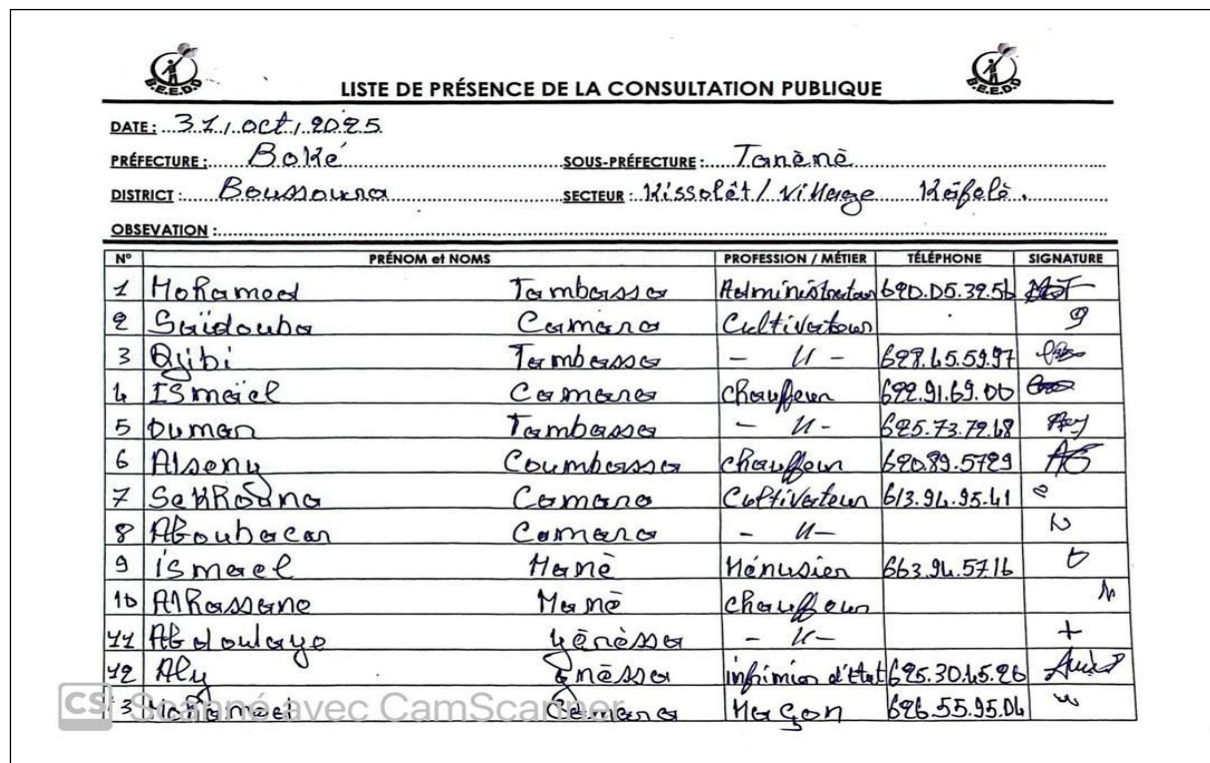 B.E.E.D.D
B.E.E.D.D
LISTE DE PRÉSENCE DE LA CONSULTATION PUBLIQUE
DATE : 31, oct, 2025
PRÉFECTURE : Boké SOUS-PRÉFECTURE : Tanènè
DISTRICT : Boussoura SECTEUR : Kissolêt / village Kaïfolè.
OBSEVATION :
N° PRÉNOM et NOMS PROFESSION / MÉTIER TÉLÉPHONE SIGNATURE
1 Mohamed Tambassa Administrateur 620.05.39.56
2 Saïdouba Camara Cultivateur
3 Tambassa - 11 -
4 ISmaïel Camara chauffeur 622.91.69.00
5 Duman Tambassa - 11 - 625.73.79.48
6 Alseny Coumbassa chauffeur 620.89.5729 AC
7 Sekhouna Camara Cultivateur 613.94.95.41
8 Aboubacar Camara - 11 -
9 ismael Manè Ménusier 663.94.5716
10 Alhassane Manè chauffeur
11 Abdoulaye yénèssa - 11 - +
12 Aly infirmier d'état 625.30.45.26
13 Mohamed Camara Maçon 626.55.95.04
CS Scanné avec CamScanner